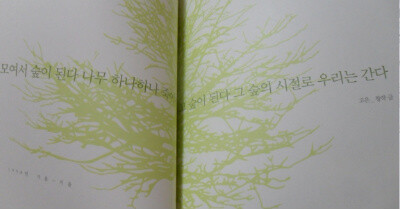 모여서 숲이 된다 나무 하나하나 숲이 된다 그 숲의 시절로 우리는 간다
고은